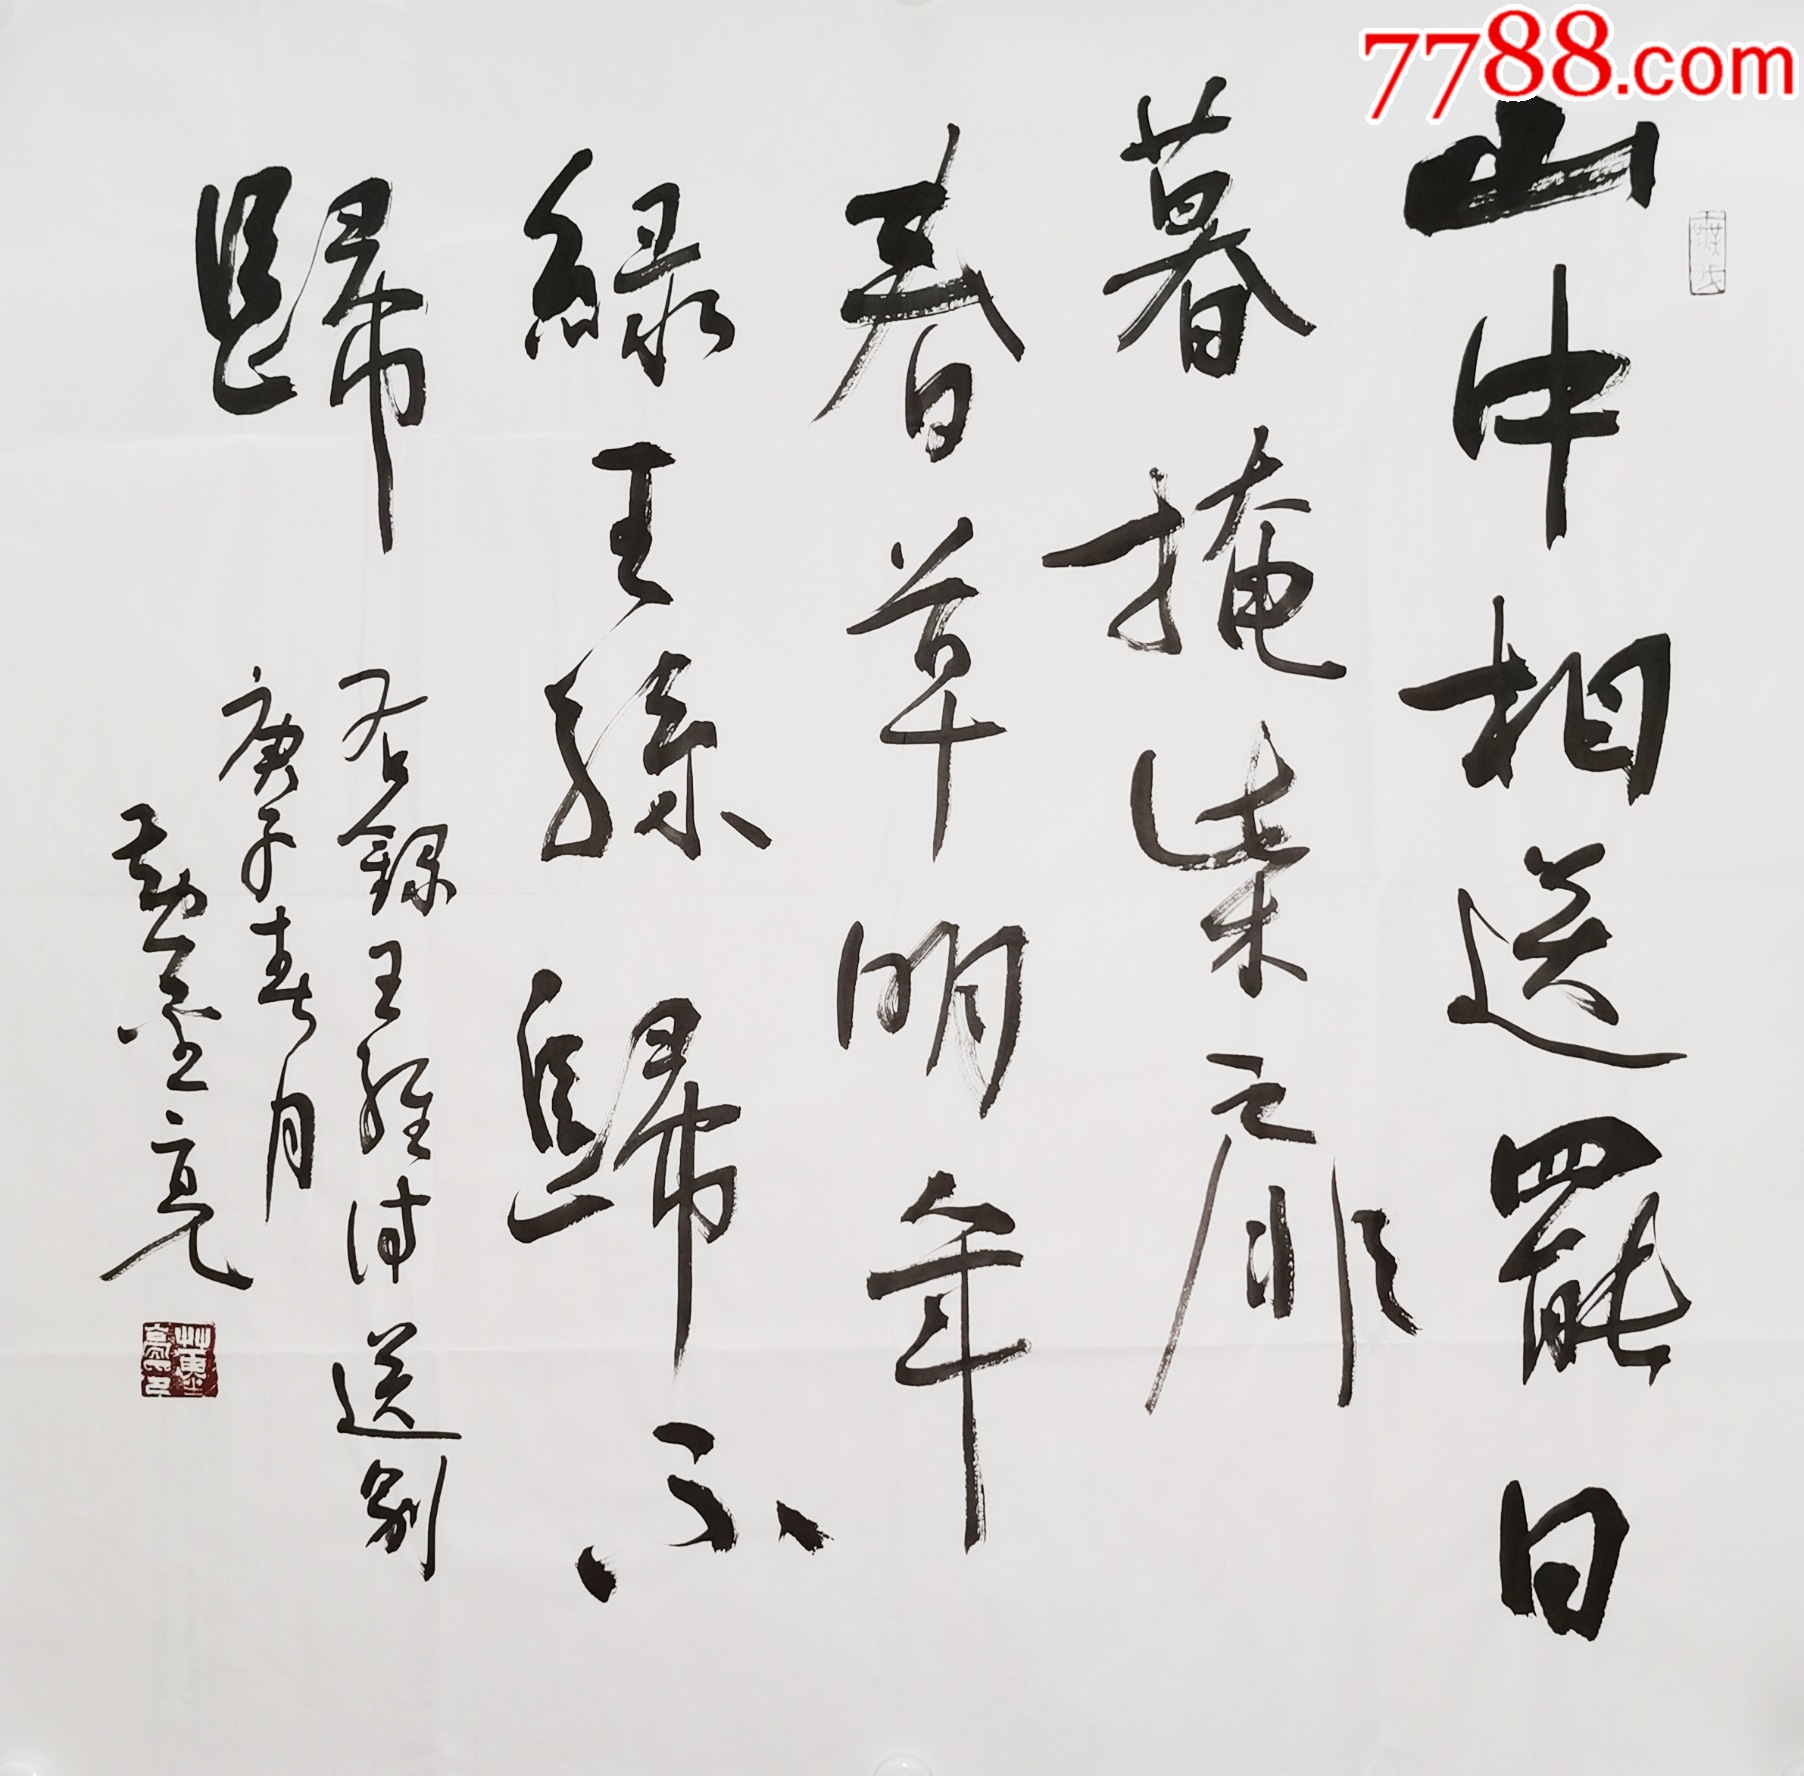 7788.com
山中相送罷日
暮掩柴扉
春草明年
綠王孫歸不
歸
右錄王維詩送別
庚子春月
金亮